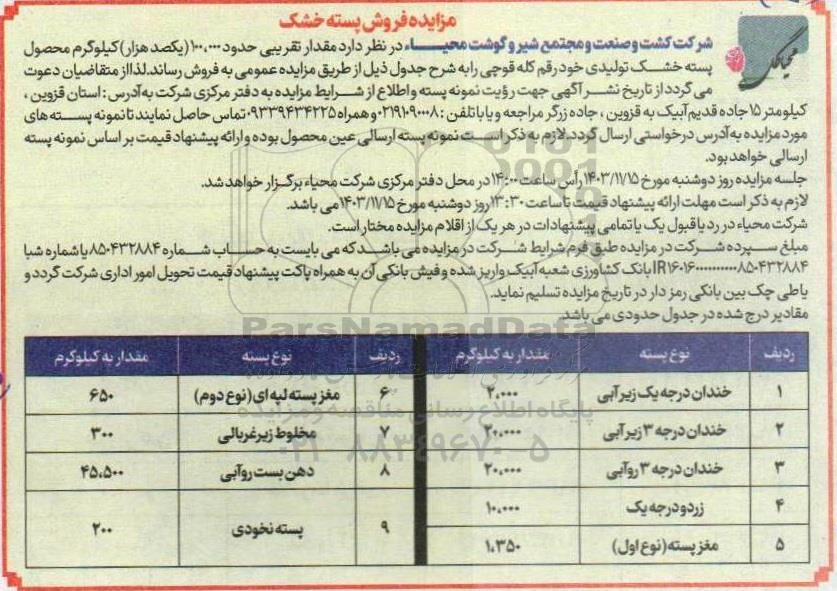 مزایده فروش پسته خشک
محیا گل
شرکت کشت و صنعت و مجتمع شیر و گوشت محیـــاء در نظر دارد مقدار تقریبی حدود ۱۰۰,۰۰۰ (یکصد هزار) کیلوگرم محصول
پسته خشک تولیدی خود رقم کله قوچی را به شرح جدول ذیل از طریق مزایده عمومی به فروش رساند. لذا از متقاضیان دعوت
می گردد از تاریخ نشر آگهی جهت رؤیت نمونه پسته و اطلاع از شرایط مزایده به دفتر مرکزی شرکت به آدرس: استان قزوین،
کیلومتر ۱۵ جاده قدیم آبیک به قزوین، جاده زرگر مراجعه و یا با تلفن: ۰۲۱۹۱۰۹۰۰۰۸ و همراه ۰۹۳۳۹۴۳۴۲۲۵ تماس حاصل نمایند تا نمونه پسته های
مورد مزایده به آدرس درخواستی ارسال گردد. لازم به ذکر است نمونه پسته ارسالی عین محصول بوده و ارائه پیشنهاد قیمت بر اساس نمونه پسته
ارسالی خواهد بود.
جلسه مزایده روز دوشنبه مورخ ۱۴۰۳/۱۱/۱۵ رأس ساعت ۱۴:۰۰ در محل دفتر مرکزی شرکت محیاء برگزار خواهد شد.
لازم به ذکر است مهلت ارائه پیشنهاد قیمت تا ساعت ۱۳:۳۰ روز دوشنبه مورخ ۱۴۰۳/۱۱/۱۵ می باشد.
شرکت محیاء در رد یا قبول یک یا تمامی پیشنهادات در هر یک از اقلام مزایده مختار است.
مبلغ سپرده شرکت در مزایده طبق فرم شرایط شرکت در مزایده می باشد که می بایست به حساب شماره ۸۵۰۴۳۲۸۸۴ یا شماره شبا
بانک کشاورزی شعبه آبیک واریز شده و فیش بانکی آن به همراه پاکت پیشنهاد قیمت تحویل امور اداری شرکت گردد و
یا طی چک بین بانکی رمز دار در تاریخ مزایده تسلیم نماید.
مقادیر درج شده در جدول حدودی می باشد.
ردیف نوع پسته مقدار به کیلوگرم ردیف نوع پسته مقدار به کیلوگرم
۱ خندان درجه یک زیر آبی ۲,۰۰۰ ۶ مغز پسته لپه ای (نوع دوم) ۶۵۰
۲ خندان درجه ۳ زیر آبی ۲۰,۰۰۰ ۷ مخلوط زیر غربالی ۳۰۰
۳ خندان درجه ۳ روآبی ۲۰,۰۰۰ ۸ دهن بست روآبی ۴۵,۵۰۰
۴ زرد و درجه یک ۱۰,۰۰۰ ۹ پسته نخودی ۲۰۰
۵ مغز پسته (نوع اول) ۱,۳۵۰
ParsNamadData
پایگاه اطلاع رسانی مناقصه و مزایده
۰۲۱-۸۸۳۴۹۶۷۰-۵